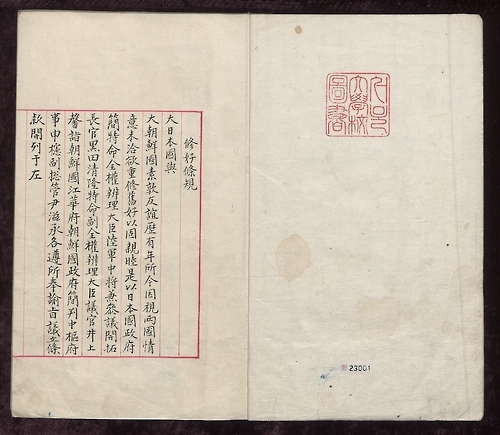 서울
大學校
圖書
23001
修好條規
大日本國與
大朝鮮國素敦友誼歷有年所今因視兩國情
意未洽欲重修舊好以固親睦是以日本國政府
簡特命全權辨理大臣陸軍中將兼參議開拓
長官黑田清隆特命副全權辨理大臣議官井上
馨詣朝鮮國江華府朝鮮國政府簡判中樞府
事申櫶副捴管尹滋承各遵所奉諭旨議立條
款開列于左